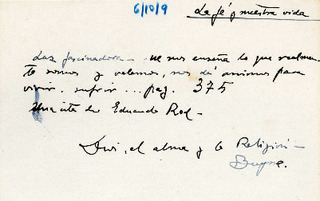 6/10/9
La fé y nuestra vida
Luz fascinadora — Me nos enseña lo que realmen-
te somos y valemos, nos dé animos para
vivir. sufrir ... pag. 375
Una cita de Eduardo Rod —
el alma y la Religión —